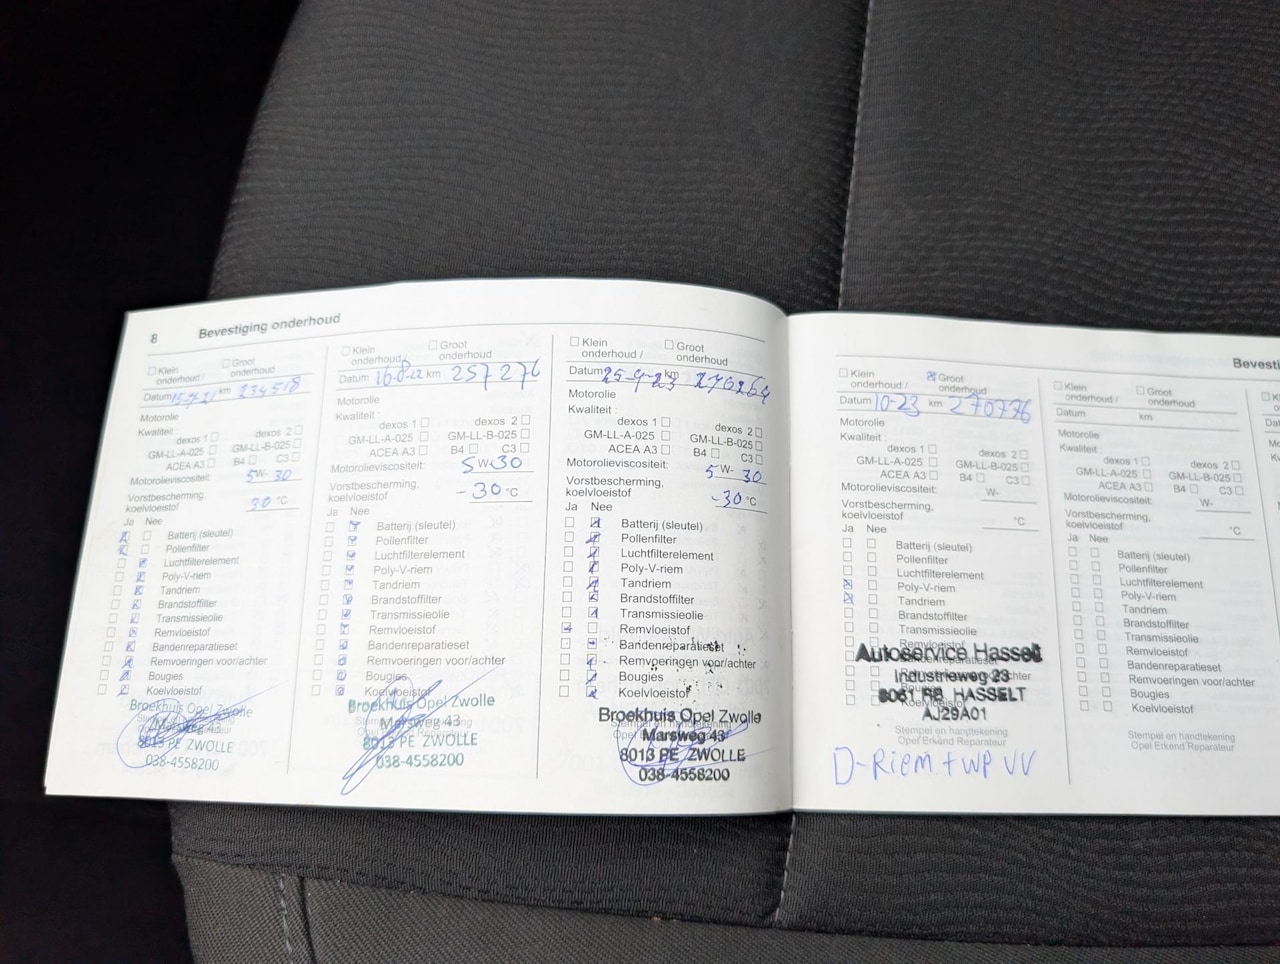 8 Bevestiging onderhoud
Klein onderhoud / Groot onderhoud
Datum km 234518
Motorolie
Kwaliteit :
dexos 1 dexos 2
GM-LL-A-025 GM-LL-B-025
ACEA A3 B4 C3
Motorolieviscositeit: 5 W- 30
Vorstbescherming, koelvloeistof 30 °C
Ja Nee
Batterij (sleutel)
Pollenfilter
Luchtfilterelement
Poly-V-riem
Tandriem
Brandstoffilter
Transmissieolie
Remvloeistof
Bandenreparatieset
Remvoeringen voor/achter
Bougies
Koelvloeistof
Broekhuis Opel Zwolle
Marsweg 43
8013 PE ZWOLLE
038-4558200
Klein onderhoud / Groot onderhoud
Datum 16-8-22 km 257276
Motorolie
Kwaliteit :
dexos 1 dexos 2
GM-LL-A-025 GM-LL-B-025
ACEA A3 B4 C3
Motorolieviscositeit: 5 W- 30
Vorstbescherming, koelvloeistof -30 °C
Ja Nee
Batterij (sleutel)
Pollenfilter
Luchtfilterelement
Poly-V-riem
Tandriem
Brandstoffilter
Transmissieolie
Remvloeistof
Bandenreparatieset
Remvoeringen voor/achter
Bougies
Koelvloeistof
Broekhuis Opel Zwolle
Marsweg 43
8013 PE ZWOLLE
038-4558200
Klein onderhoud / Groot onderhoud
Datum 25-9-23 km 270264
Motorolie
Kwaliteit :
dexos 1 dexos 2
GM-LL-A-025 GM-LL-B-025
ACEA A3 B4 C3
Motorolieviscositeit: 5 W- 30
Vorstbescherming, koelvloeistof -30 °C
Ja Nee
Batterij (sleutel)
Pollenfilter
Luchtfilterelement
Poly-V-riem
Tandriem
Brandstoffilter
Transmissieolie
Remvloeistof
Bandenreparatieset
Remvoeringen voor/achter
Bougies
Koelvloeistof
Broekhuis Opel Zwolle
Stempel en handtekening
Marsweg 43
Opel Erkend Reparateur
8013 PE ZWOLLE
038-4558200
Klein onderhoud / Groot onderhoud
Datum 10-23 km 270776
Motorolie
Kwaliteit :
dexos 1 dexos 2
GM-LL-A-025 GM-LL-B-025
ACEA A3 B4 C3
Motorolieviscositeit: W-
Vorstbescherming, koelvloeistof °C
Ja Nee
Batterij (sleutel)
Pollenfilter
Luchtfilterelement
Poly-V-riem
Tandriem
Brandstoffilter
Transmissieolie
Remvloeistof
Autoservice Hasselt
Industrieweg 23
8061 RB HASSELT
AJ29A01
Stempel en handtekening
Opel Erkend Reparateur
D-Riem + WP VV
Klein onderhoud / Groot onderhoud
Datum km
Motorolie
Kwaliteit :
dexos 1 dexos 2
GM-LL-A-025 GM-LL-B-025
ACEA A3 B4 C3
Motorolieviscositeit: W-
Vorstbescherming, koelvloeistof °C
Ja Nee
Batterij (sleutel)
Pollenfilter
Luchtfilterelement
Poly-V-riem
Tandriem
Brandstoffilter
Transmissieolie
Remvloeistof
Bandenreparatieset
Remvoeringen voor/achter
Bougies
Koelvloeistof
Stempel en handtekening
Opel Erkend Reparateur